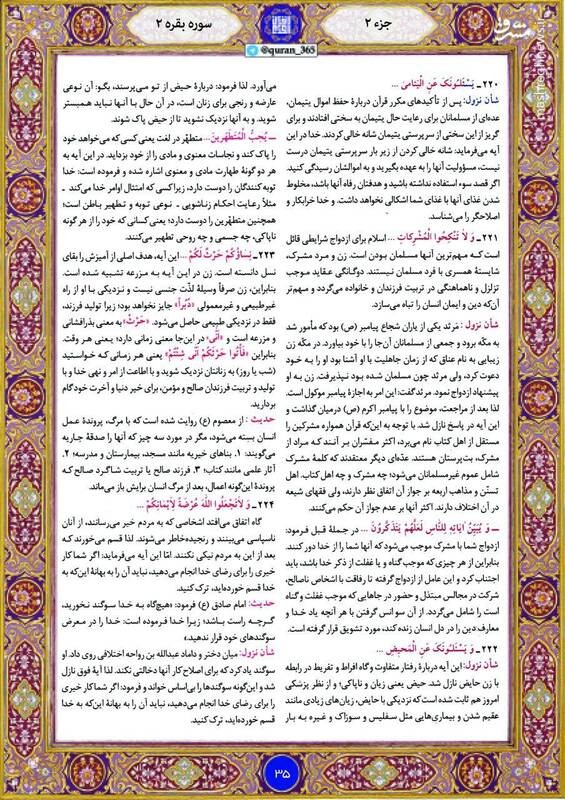 جزء ۲
سوره بقره ۲
@quran_365
mashreghnews.ir
۲۲۰ـ یَسْئَلُونَکَ عَنِ الْیَتامیٰ ...
شأن نزول: پس از تأکیدهای مکرر قرآن دربارهٔ حفظ اموال یتیمان،
عده‌ای از مسلمانان برای رعایت حال یتیمان به سختی افتادند و برای
گریز از این سختی از سرپرستی یتیمان شانه خالی کردند. خدا در این
آیه می‌فرماید: شانه خالی کردن از زیر بار سرپرستی یتیمان درست
نیست، مسؤولیت آنها را به عهده بگیرید و به اموالشان رسیدگی کنید.
اگر قصد سوء استفاده نداشته باشید و هدفتان رفاه آنها باشد، مخلوط
شدن غذای آنها با غذای شما اشکالی نخواهد داشت. و خدا خرابکار و
اصلاحگر را می‌شناسد.
۲۲۱ـ وَ لا تَنْکِحُوا الْمُشْرِکاتِ ... اسلام برای ازدواج شرایطی قائل
است که مهم‌ترین آنها مسلمان بودن است. زن و مرد مشرک،
شایستهٔ همسری با فرد مسلمان نیستند. دوگانگی عقاید موجب
تزلزل و ناهماهنگی در تربیت فرزندان و خانواده می‌گردد و مهم‌تر
آن‌که دین و ایمان انسان را تباه می‌سازد.
شأن نزول: مَرثد یکی از یاران شجاع پیامبر (ص) بود که مأمور شد
به مکّه برود و جمعی از مسلمانان آن‌جا را با خود بیاورد. در مکّه زن
زیبایی به نام عناق که از زمان جاهلیت با او آشنا بود او را به خود
دعوت کرد، ولی مرثد چون مسلمان شده بود نپذیرفت. زن به او
پیشنهاد ازدواج نمود. مرثد گفت: این امر به اجازهٔ پیامبر موکول است.
لذا بعد از مراجعت، موضوع را با پیامبر اکرم (ص) درمیان گذاشت و
این آیه در پاسخ نازل شد. با توجه به این‌که قرآن همواره مشرکین را
مستقل از اهل کتاب نام می‌برد، اکثر مفسّران بر آنند که مراد از
مشرک، بت‌پرستان هستند. عده‌ای دیگر معتقدند که کلمهٔ مشرک
شامل عموم غیرمسلمانان می‌شود؛ چه مشرک و چه اهل کتاب. اهل
تسنّن و مذاهب اربعه بر جواز آن اتفاق نظر دارند، ولی فقهای شیعه
در آن اختلاف دارند. اکثر آنها بر عدم جواز آن حکم می‌کنند.
ـ وَ یُبَیِّنُ ایاتِهِ لِلنّاسِ لَعَلَّهُمْ یَتَذَکَّرُونَ ... در جملهٔ قبل فرمود:
ازدواج شما با مشرک موجب می‌شود که آنها شما را از خدا دور کنند.
بنابراین از هر چیزی که موجب گناه و یا غفلت از ذکر خدا باشد، باید
اجتناب کرد و این عامل از ازدواج گرفته تا رفاقت با اشخاص ناصالح،
شرکت در مجالس مبتذل و حضور در جاهایی که موجب غفلت و گناه
است را شامل می‌گردد. از آن سو انس گرفتن با هر آنچه یاد خدا و
معارف دین را در دل انسان زنده کند، مورد تشویق قرار گرفته است.
۲۲۲ـ وَ یَسْئَلُونَکَ عَنِ الْمَحیضِ ...
شأن نزول: این آیه دربارهٔ رفتار متفاوت و گاه افراط و تفریط در رابطه
با زن حایض نازل شد. حیض یعنی زیان و ناپاکی؛ و از نظر پزشکی
امروز هم ثابت شده است که نزدیکی با حایض، زیان‌های زیادی مانند
عقیم شدن و بیماری‌هایی مثل سفلیس و سوزاک و غیره به بار
می‌آورد. لذا فرمود: دربارهٔ حیض از تو می‌پرسند، بگو: آن نوعی
عارضه و رنجی برای زنان است، در آن حال با آنها نباید همبستر
شوید و به آنها نزدیک نشوید تا از حیض پاک شوند.
ـ یُحِبُّ الْمُتَطَهِّرینَ... متطهّر در لغت یعنی کسی که می‌خواهد خود
را پاک کند و نجاسات معنوی و مادی را از خود بزداید. در این آیه به
هر دو گونهٔ طهارت مادی و معنوی اشاره شده و فرموده است: خدا
توبه کنندگان را دوست دارد، زیرا کسی که امتثال اوامر خدا می‌کند ـ
مثلاً رعایت احکام زناشویی ـ نوعی توبه و تطهیر باطن است؛
همچنین متطهّرین را دوست دارد؛ یعنی کسانی که خود را از هر گونه
ناپاکی، چه جسمی و چه روحی تطهیر می‌کنند.
۲۲۳ـ نِساؤُکُمْ حَرْثٌ لَکُمْ ... این آیه، هدف اصلی از آمیزش را بقای
نسل دانسته است. زن در این آیه به مزرعه تشبیه شده است.
بنابراین، زن صرفاً وسیلهٔ لذّت جنسی نیست و نزدیکی با او از راه
غیرطبیعی و غیرمعمولی «دُبُراً» جایز نخواهد بود؛ زیرا تولید فرزند،
فقط در نزدیکی طبیعی حاصل می‌شود. «حَرْثٌ» به معنی بذرافشانی
و مزرعه است و «أنّی» در این‌جا معنی زمانی دارد؛ یعنی هر وقت.
بنابراین «فَأْتُوا حَرْثَکُمْ أَنّی شِئْتُمْ» یعنی هر زمانی که خواستید
(شب یا روز) به زنانتان نزدیک شوید و با اطاعت از امر و نهی خدا و با
تولید و تربیت فرزندان صالح و مؤمن، برای خیر دنیا و آخرت خود گام
بردارید.
حدیث : از معصوم (ع) روایت شده است که با مرگ، پروندهٔ عمل
انسان بسته می‌شود، مگر در مورد سه چیز که آنها را صدقهٔ جاریه
می‌گویند: ۱. بناهای خیریه مانند مسجد، بیمارستان و مدرسه؛ ۲.
آثار علمی مانند کتاب؛ ۳. فرزند صالح یا تربیت شاگرد صالح که
پروندهٔ این‌گونه اعمال، بعد از مرگ انسان برایش باز می‌ماند.
۲۲۴ـ وَ لا تَجْعَلُوا اللهَ عُرْضَةً لِاَیْمانِکُمْ ...
گاه اتفاق می‌افتد اشخاصی که به مردم خیر می‌رسانند، از آنان
ناسپاسی می‌بینند و رنجیده‌خاطر می‌شوند. لذا قسم می‌خورند که
بعد از این به مردم نیکی نکنند. امّا این آیه می‌فرماید: اگر شما کار
خیری را برای رضای خدا انجام می‌دهید، نباید آن را به بهانهٔ این‌که به
خدا قسم خورده‌اید، ترک کنید.
حدیث: امام صادق (ع) فرمود: هیچ‌گاه به خدا سوگند نخورید،
گرچه راست باشد؛ زیرا خدا فرموده است: خدا را در معرض
سوگندهای خود قرار ندهید»
شأن نزول: میان دختر و داماد عبدالله بن رواحه اختلافی روی داد. او
سوگند یاد کرد که برای اصلاح کار آنها دخالتی نکند. لذا آیهٔ فوق نازل
شد و این‌گونه سوگندها را بی‌اساس خواند و فرمود: اگر شما کار خیری
را برای رضای خدا انجام می‌دهید، نباید آن را به بهانهٔ این‌که به خدا
قسم خورده‌اید، ترک کنید.
۳۵